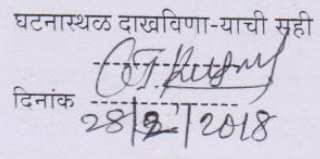 घटनास्थळ दाखविणा-याची सही
दिनांक
28/2/2018